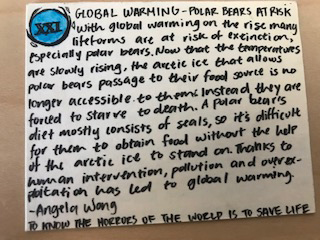 XXI
GLOBAL WARMING - POLAR BEARS AT RISK
With global warming on the rise many
lifeforms are at risk of extinction,
especially polar bears. Now that the temperatures
are slowly rising, the arctic ice that allows
polar bears passage to their food source is no
longer accessible to them. Instead they are
forced to starve to death. A polar bear's
diet mostly consists of seals, so it's difficult
for them to obtain food without the help
of the arctic ice to stand on. Thanks to
human intervention, pollution and overex-
ploitation has led to global warming.
-Angela Wong
TO KNOW THE HORRORS OF THE WORLD IS TO SAVE LIFE